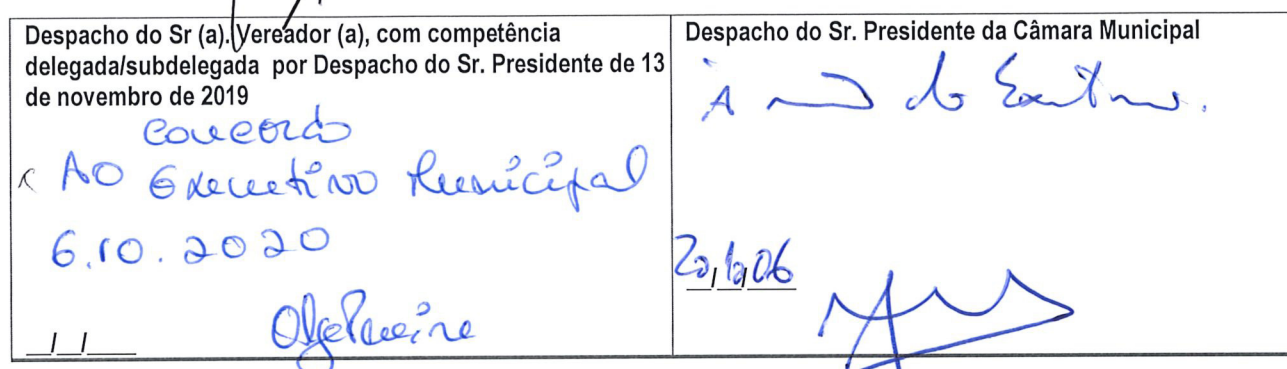 Despacho do Sr (a). Vereador (a), com competência
delegada/subdelegada por Despacho do Sr. Presidente de 13
de novembro de 2019
Concordo
AO Executivo Municipal
6.10.2020
Olga Pereira
__/__/____
Despacho do Sr. Presidente da Câmara Municipal
À do Executivo.
20/10/06